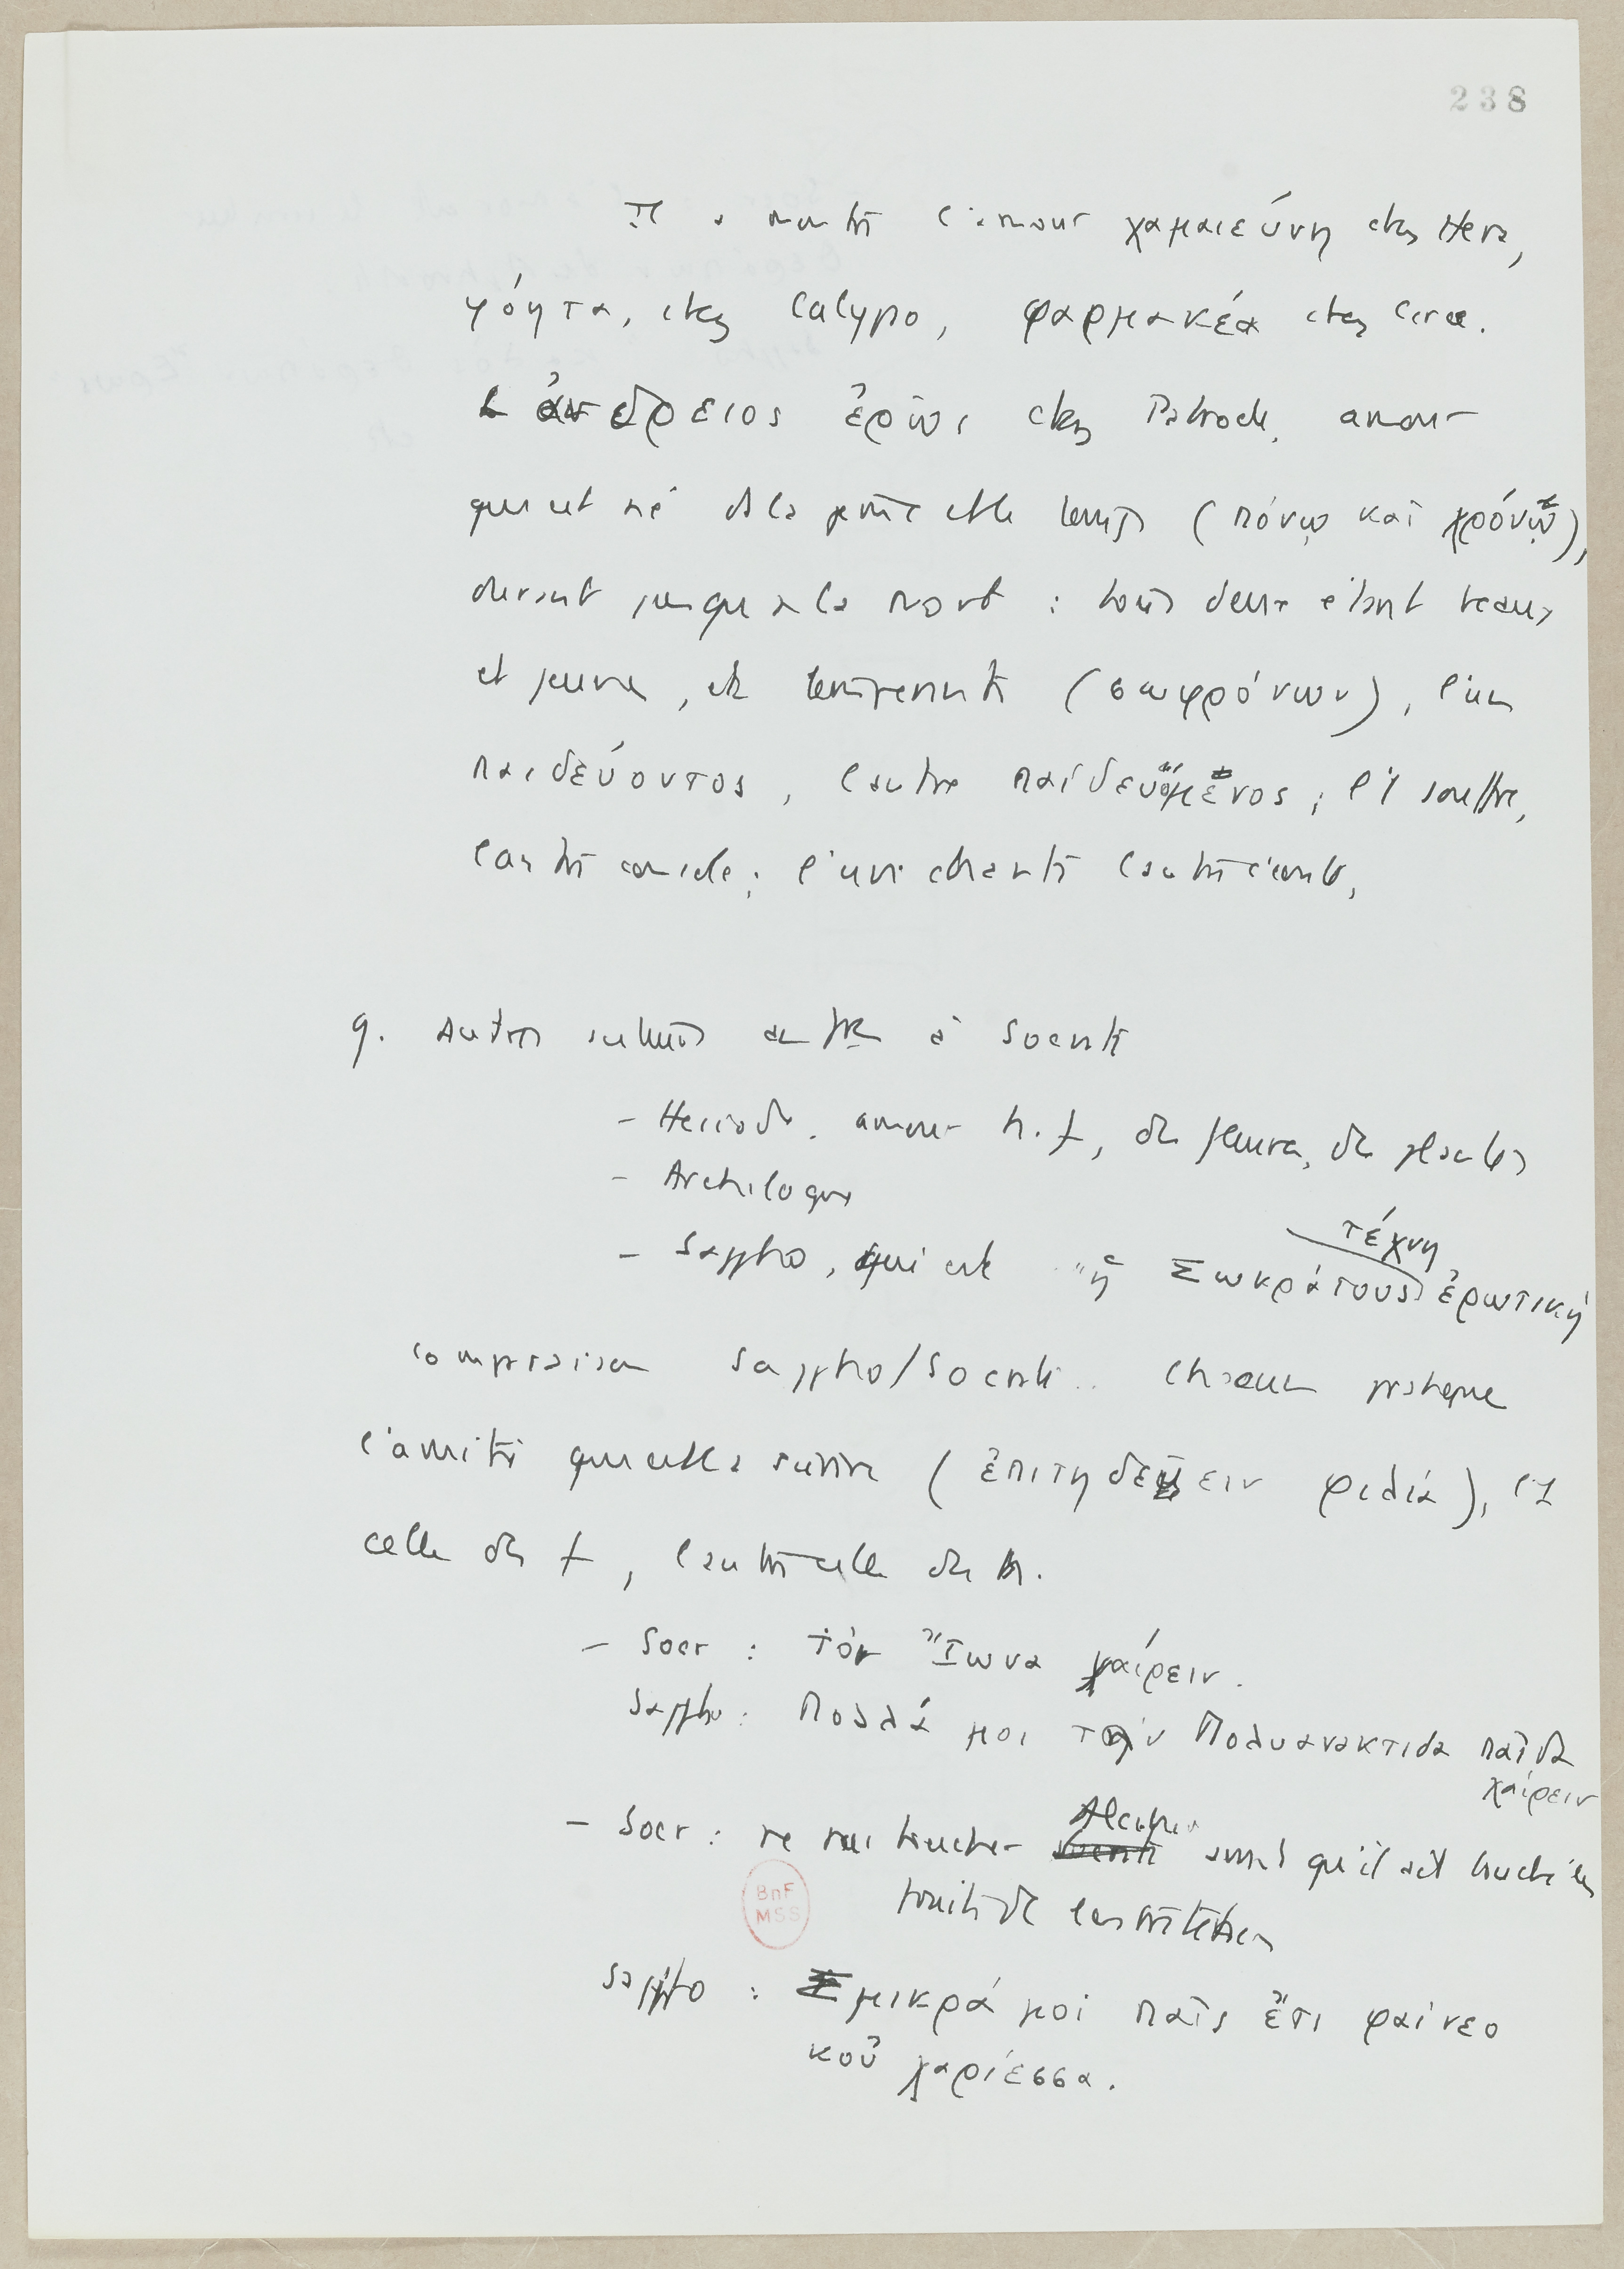 238
Il a montré l'amour χαμαιεύνη chez Hera,
γόητα, chez Calypso, φαρμακέα chez Circe.
L'ἀνδρειος ἔρως chez Patrocle, amour
qui est né de la peine et du temps (πόνῳ καὶ χρόνῳ),
durant jusqu'à la mort : tous deux étant beaux
et jeunes, et tempérants (σωφρόνων), l'un
παιδεύοντος, l'autre παιδευόμενος ; l'1 souffre,
l'autre console ; l'un chante l'autre écoute,
9. Autres
à Socrate
- Hésiode. amour h. f, des fleuves, des plantes
- Archiloque
- Sappho, qui est "ἡ Σωκράτους τέχνη ἐρωτική
comparaison Sappho/Socrate. Chacun pratique
l'amitié qui est la sienne (ἐπιτηδεύειν φιλία), l'1
celle des f, l'autre celle des h.
- Socr : τὸν Ἴωνα χαίρειν.
Sappho : Πολλά μοι τὴν Πολυανακτιδα παῖδα
χαίρειν
- Socr : ne veut toucher Alcibiade avant qu'il soit
Sappho : μικρά μοι παῖς ἔτι φαίνεο
κοὐ χαρίεσσα.
BnF
MSS